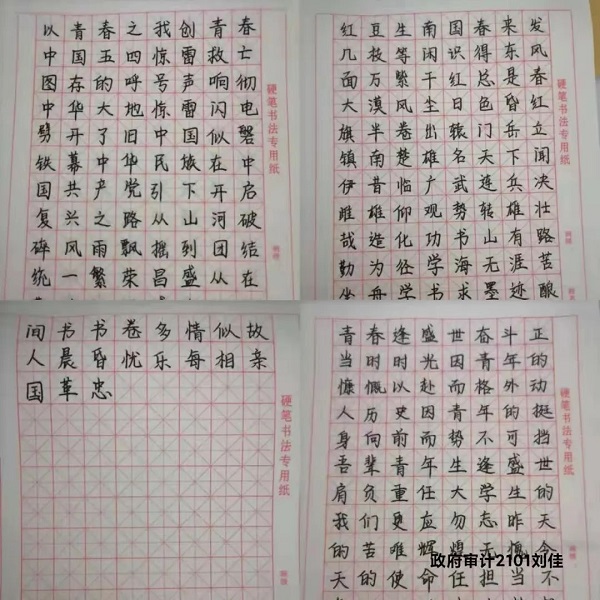 以青春之我创青春
中国五四惊雷救亡
图存的呼号声响彻
中华大地惊雷闪电
劈开了旧中国似磐
铁幕中华民族在中
国共产党引下开启
复兴之路从山河破
碎风雨飘摇到团结
统一繁荣昌盛从在
硬笔书法专用纸
红豆生南国春来发
几枝等闲识得东风
面万繁千红总是春
大漠风尘日色昏红
旗半卷出辕门岳立
镇南楚雄名天下闻
伊昔临广武连兵决
雌雄仰观势转雄壮
哉造化功书山有路
勤为径学海无涯苦
舟学书求墨迹酿
硬笔书法专用纸
间书书卷多情似故
人晨昏忧乐每相亲
国革忠
硬笔书法专用纸
青春逢盛世奋斗正
当时时光因青年的
慷慨以赴而格外动
人历史因青年的挺
身向前而势不可挡
吾辈青年生逢盛世
肩负重任大学生的
我们更应勿志昨天
的苦难辉煌无愧今
天的使命任担当不
硬笔书法专用纸
政府审计2101刘佳